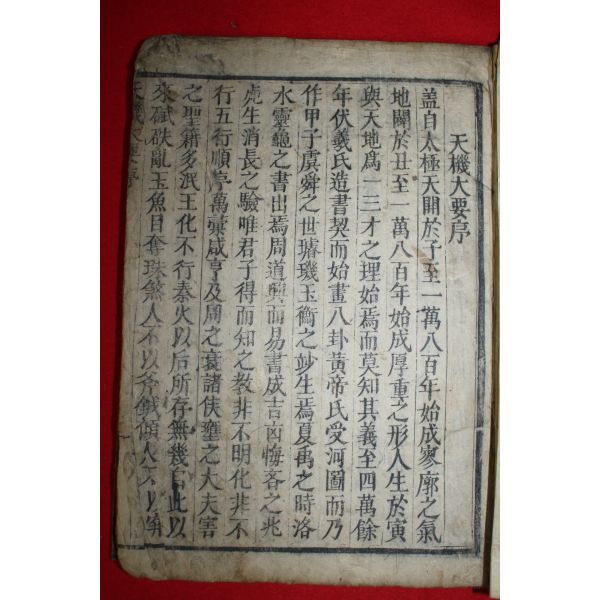 天機大要序
盖自太極天開於子至一萬八百年始成寥廓之氣
地闢於丑至一萬八百年始成厚重之形人生於寅
與天地爲一三才之理始焉而莫知其義至四萬餘
年伏羲氏造書契而始畫八卦黃帝氏受河圖而乃
作甲子虞舜之世璿璣玉衡之妙生焉夏禹之時洛
水靈龜之書出焉周道興而易書成吉凶悔吝之兆
虎生消長之驗唯君子得而知之教非不明化非不
行五行順序萬彙咸亨及周之衰諸侯壅之大夫害
之聖籍多泯王化不行秦火以后所存無幾自此以
來碔砆亂玉魚目奪珠煞人不以斧鉞傾人不以
天機大要序